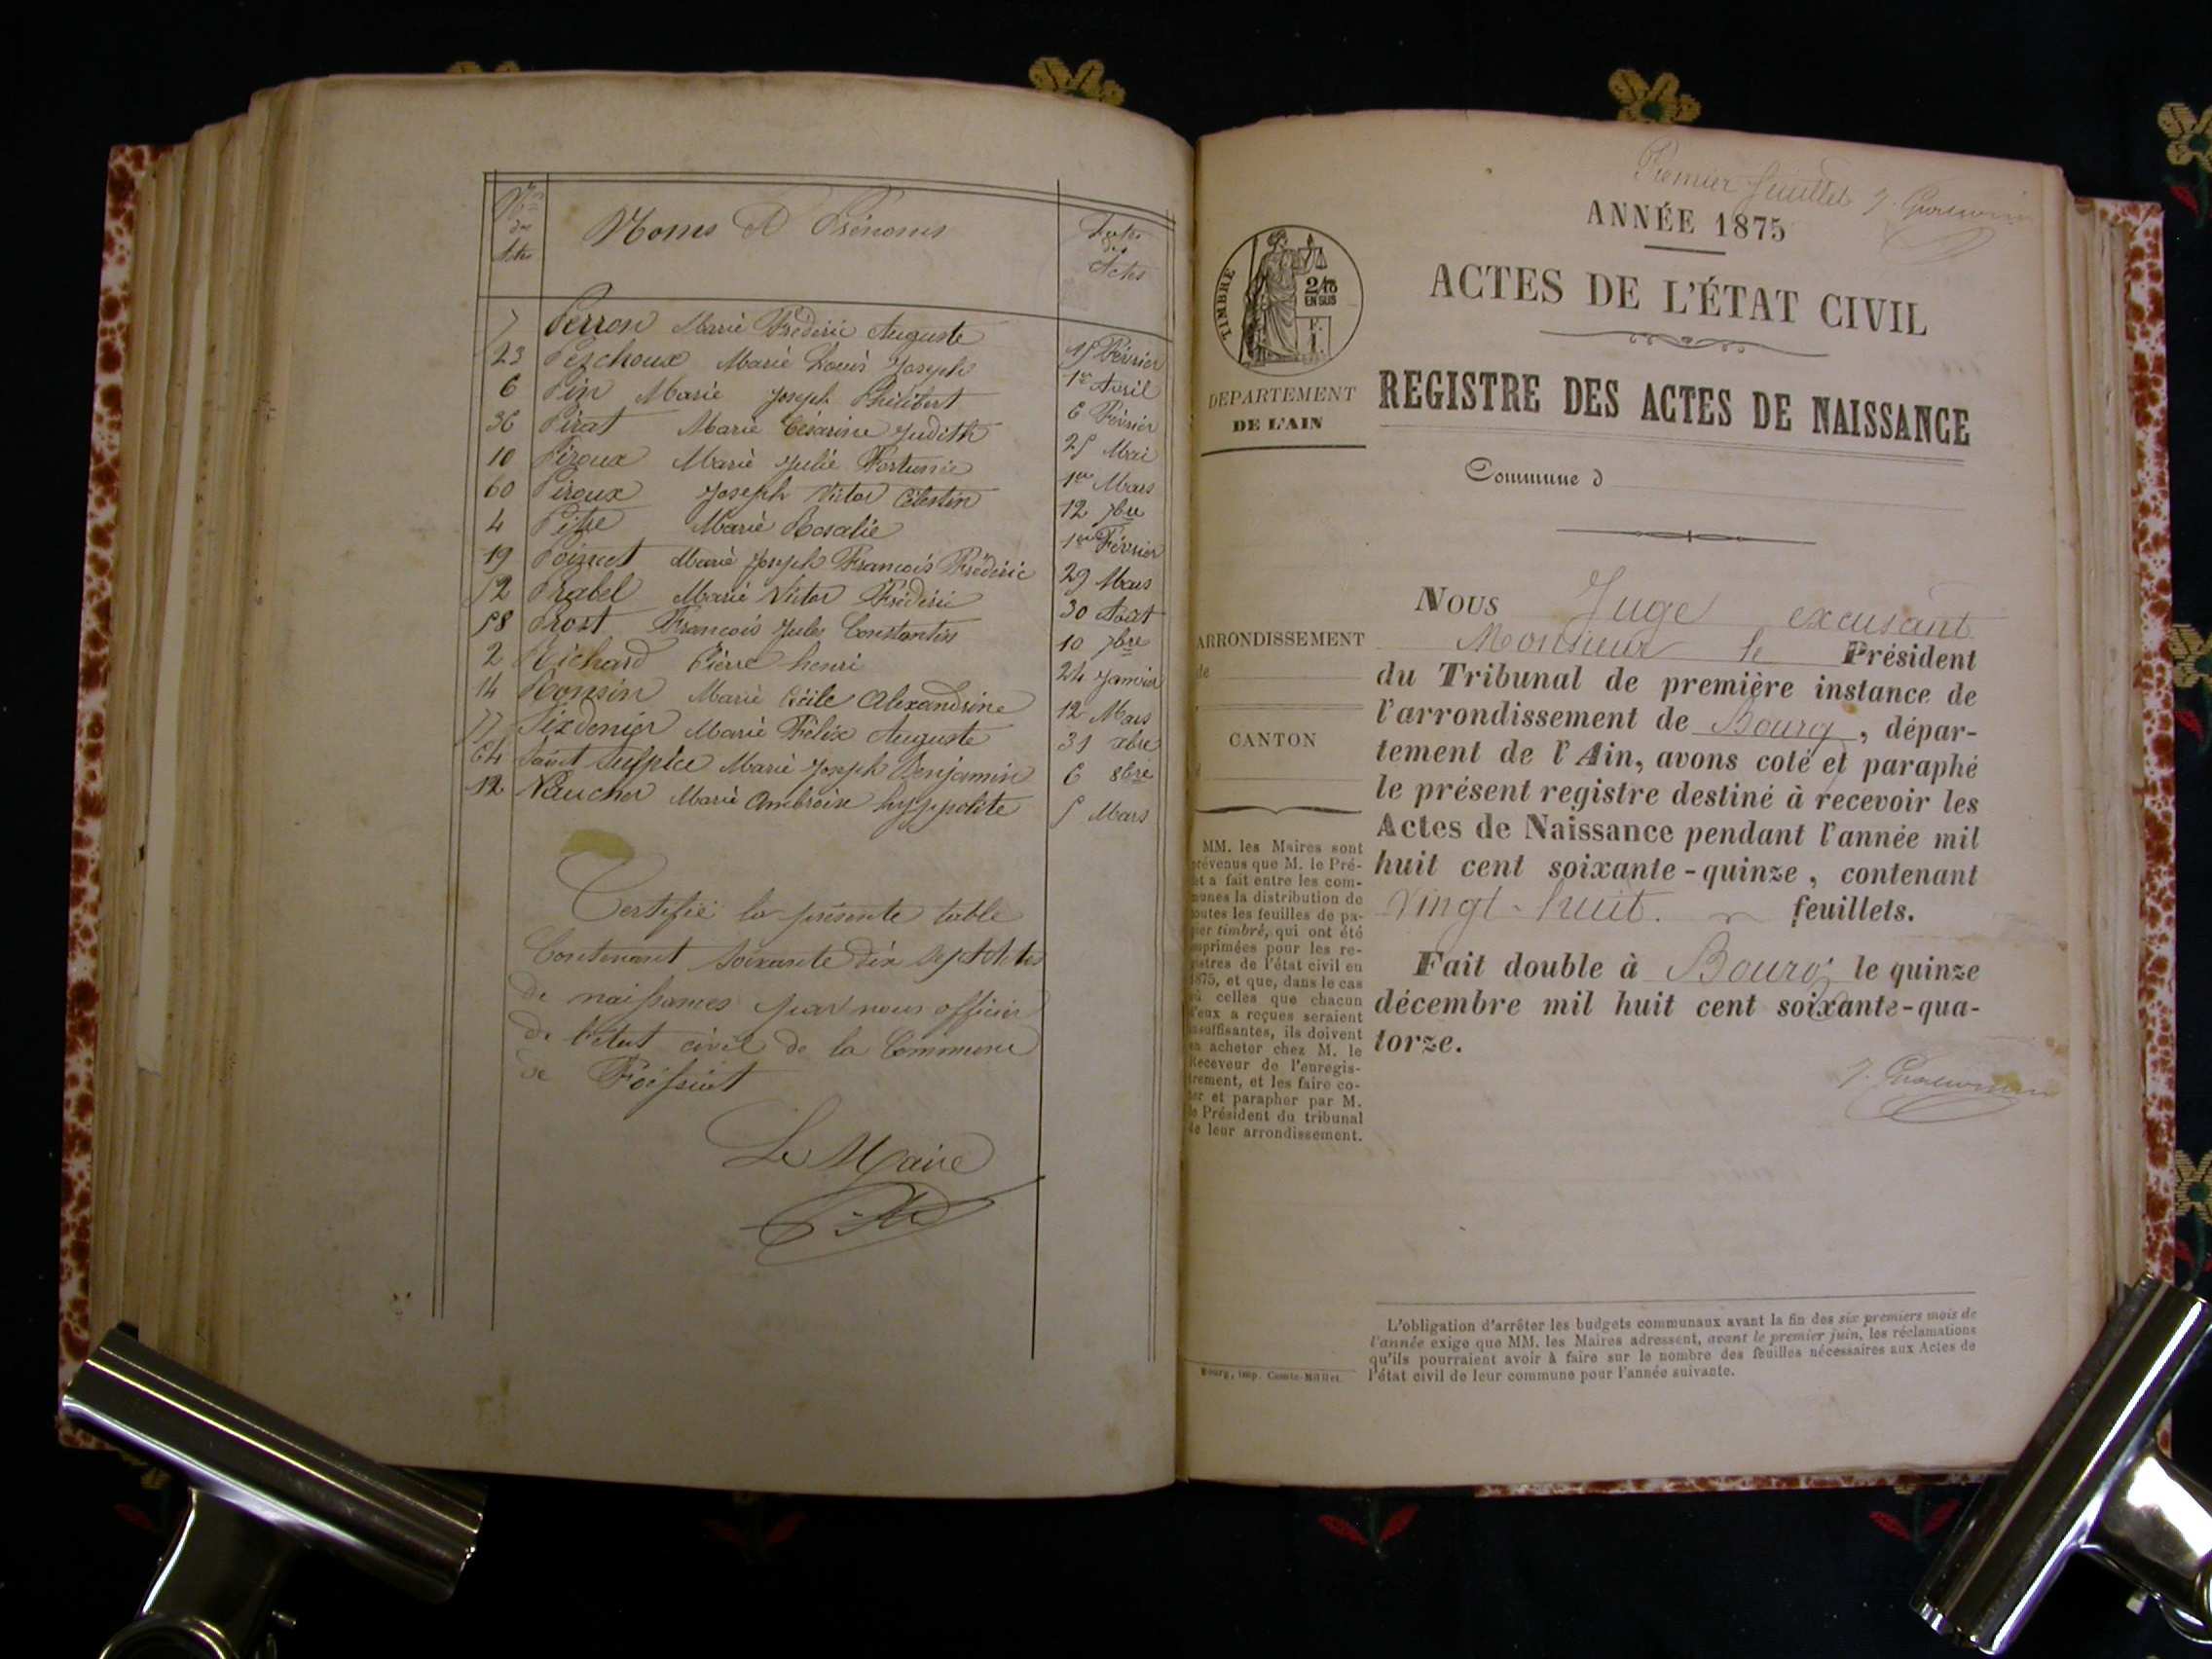 Nos des Actes
Noms Et Prénoms
Dates des Actes
7 Perron Marie Frédéric Auguste 15 Février
23 Peschoux Marie Louis Joseph 1er Avril
6 Pin Marie Joseph Philibert 6 Février
36 Pirat Marie Césarine Judith 25 Mai
10 Piroux Marie Julie Fortunée 1er Mars
60 Piroux Joseph Victor Célestin 12 7bre
4 Marie Rosalie 1er Février
19 Poizuet Marie Joseph François Frédéric 29 Mars
52 Prabel Marie Victor Frédéric 30 Août
58 Prost François Jules Constantin 10 7bre
2 Richard Pierre henri 24 Janvier
14 Ronsin Marie Cécile Alexandrine 12 Mars
77 Sixdenier Marie Félix Auguste 31 xbre
64 Saint Sulpice Marie Joseph Benjamin 6 8bre
12 Vaucher Marie Ambroise hyppolite 5 Mars
Certifié la présente table
Contenant soixante dix sept Actes
de naissances par nous officier
de l'état civil de la Commune
de Foissiat
Le Maire
Premier feuillet
ANNÉE 1875
ACTES DE L'ÉTAT CIVIL
REGISTRE DES ACTES DE NAISSANCE
Commune d
TIMBRE
2/10
EN SUS
DÉPARTEMENT
DE L'AIN
ARRONDISSEMENT
de
CANTON
d
MM. les Maires sont
prévenus que M. le Pré-
fet a fait entre les com-
munes la distribution de
toutes les feuilles de pa-
pier timbré, qui ont été
imprimées pour les re-
gistres de l'état civil en
1875, et que, dans le cas
où celles que chacun
d'eux a reçues seraient
insuffisantes, ils doivent
en acheter chez M. le
Receveur de l'enregis-
trement, et les faire co-
ter et parapher par M.
le Président du tribunal
de leur arrondissement.
Bourg, imp. Comte-Milliet.
NOUS Juge excusant
Monsieur le Président
du Tribunal de première instance de
l'arrondissement de Bourg, dépar-
tement de l'Ain, avons coté et paraphé
le présent registre destiné à recevoir les
Actes de Naissance pendant l'année mil
huit cent soixante-quinze, contenant
Vingt-huit. feuillets.
Fait double à Bourg le quinze
décembre mil huit cent soixante-qua-
torze.
L'obligation d'arrêter les budgets communaux avant la fin des six premiers mois de
l'année exige que MM. les Maires adressent, avant le premier juin, les réclamations
qu'ils pourraient avoir à faire sur le nombre des feuilles nécessaires aux Actes de
l'état civil de leur commune pour l'année suivante.